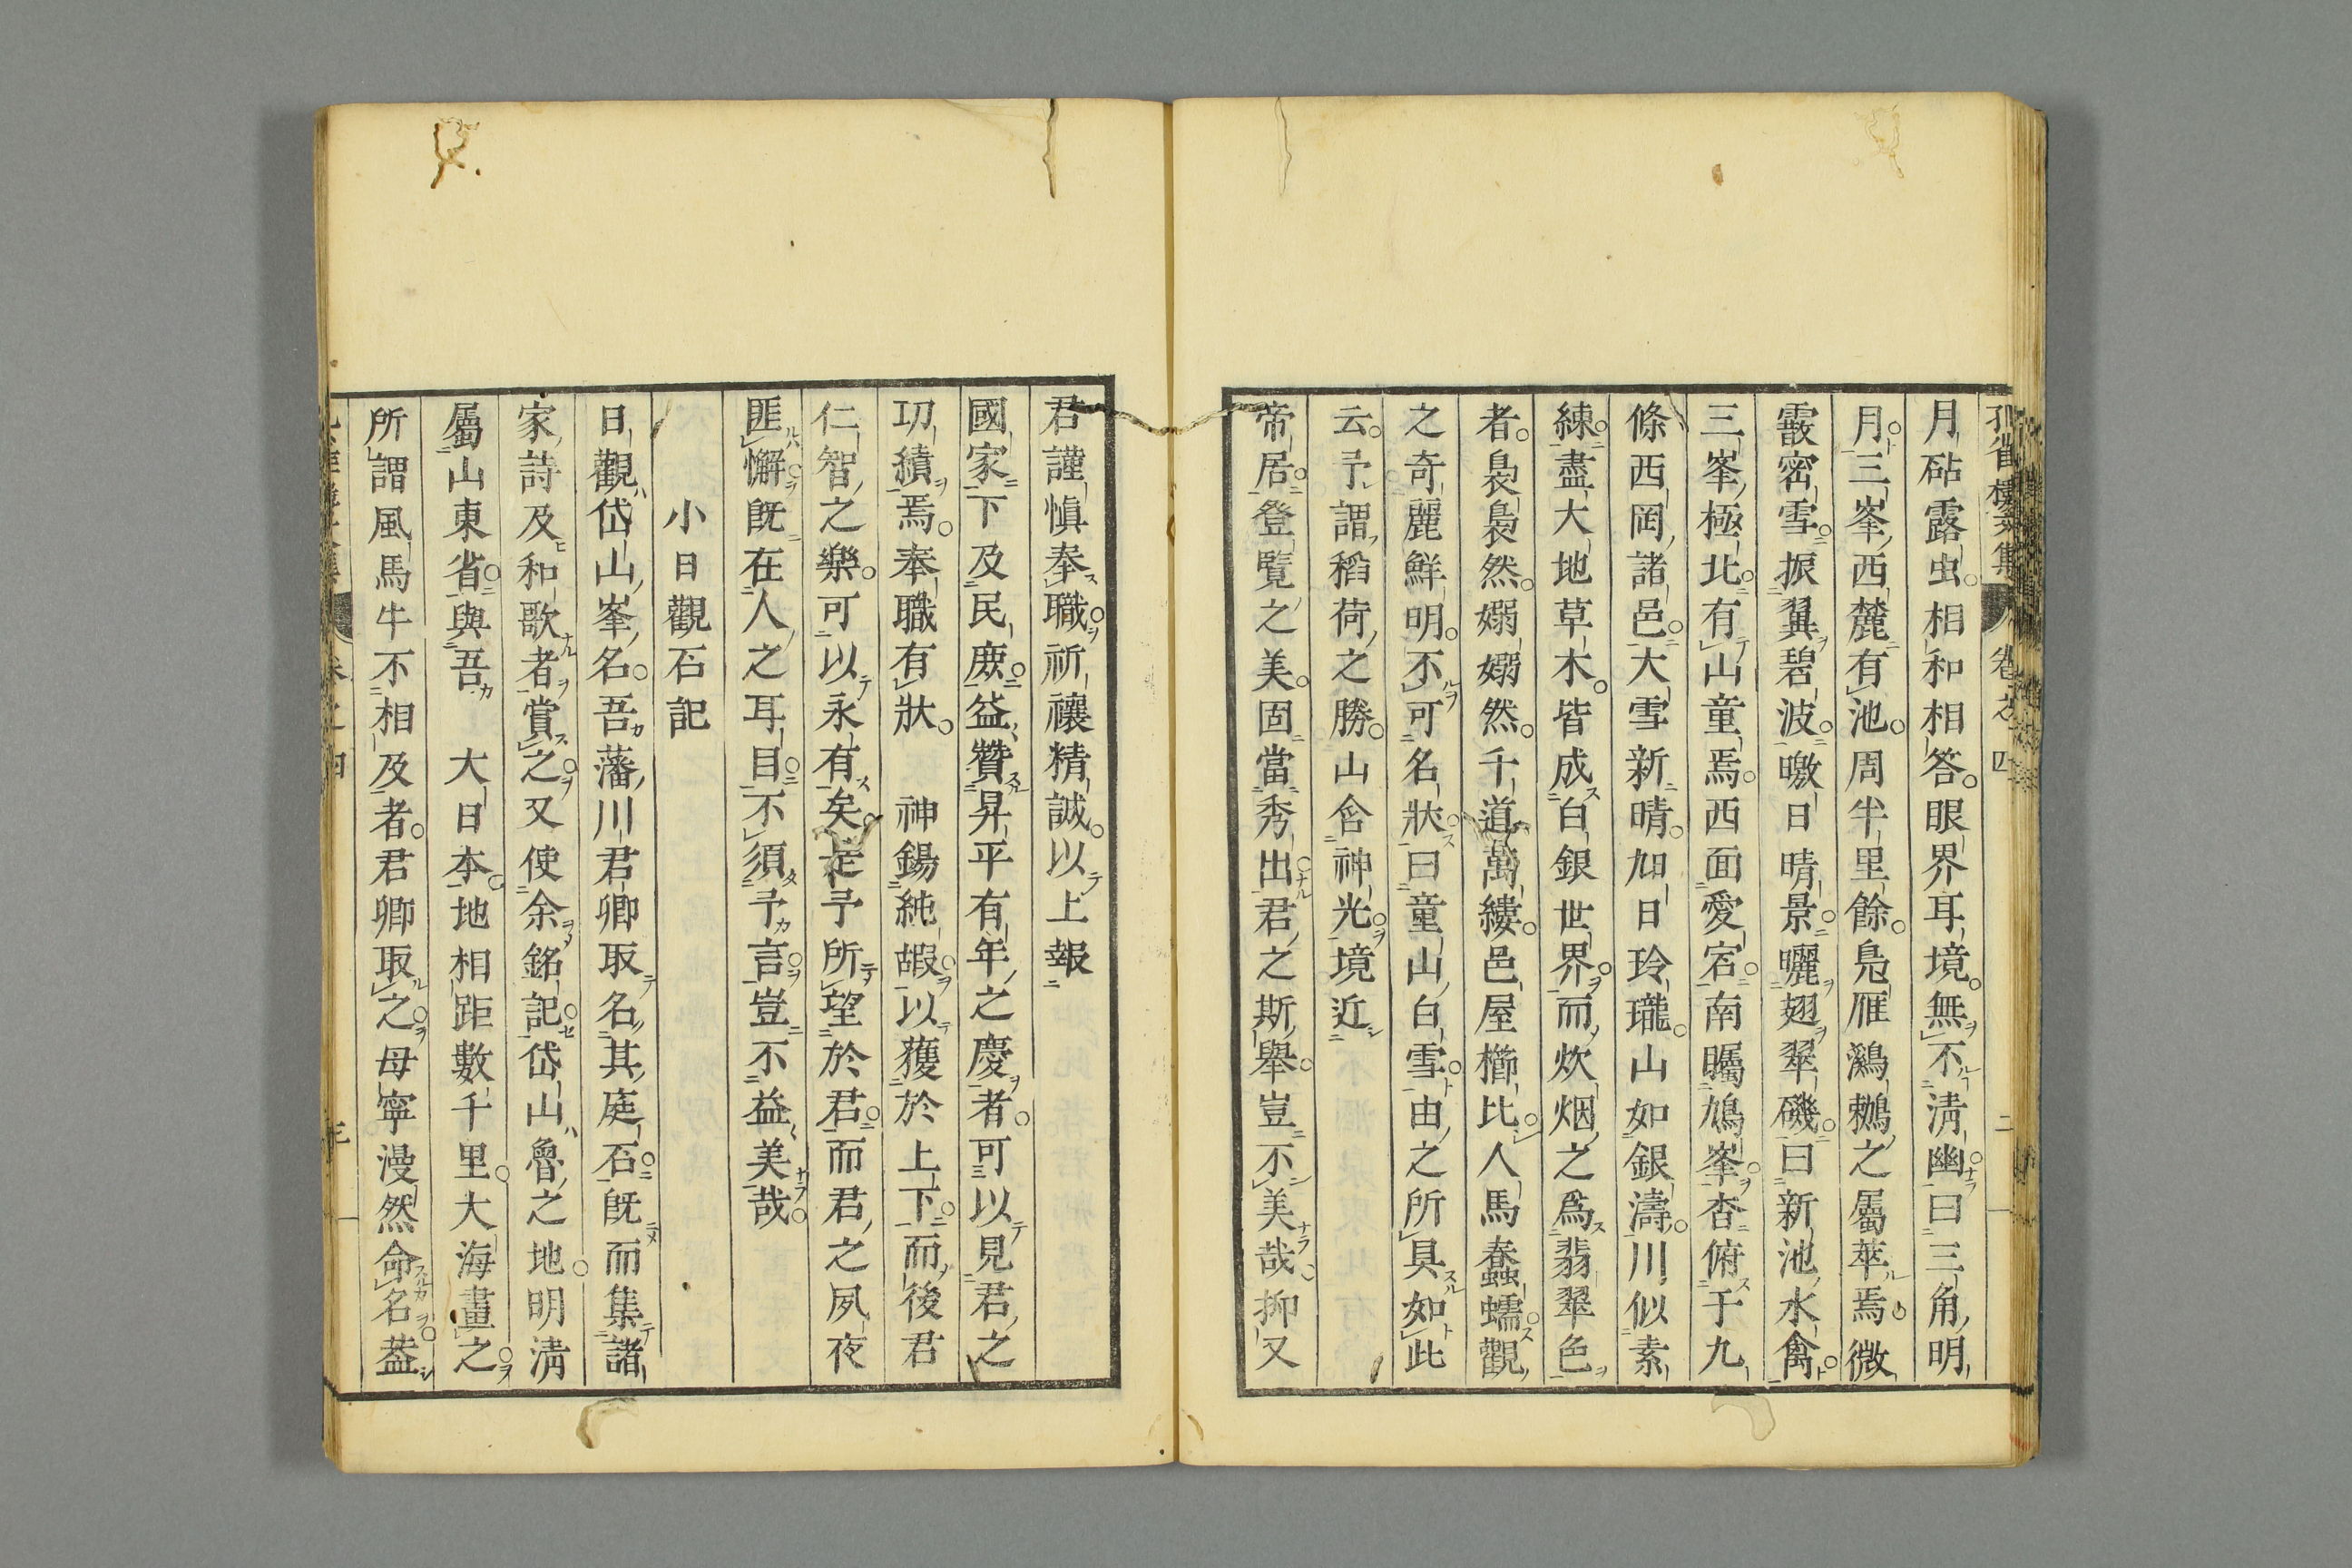 孔雀樓文集 卷之四 二
月砧露虫相和相答眼界耳境無不淸幽曰三角明
月三峯西麓有池周半里餘鳧雁鸂鶒之屬萃焉微
霰密雪振翼碧波暾日晴景曬翅翠磯曰新池水禽
三峯極北有山童焉西面愛宕南矚鳩峯杳俯于九
條西岡諸邑大雪新晴加日玲瓏山如銀濤川似素
練盡大地草木皆成白銀世界而炊烟之爲翡翠色
者裊裊然嫋嫋然千道萬縷邑屋櫛比人馬蠢蠕觀
之奇麗鮮明不可名狀曰童山白雪由之所具如此
云予謂稻荷之勝山含神光境近
帝居登覽之美固當秀出君之斯舉豈不美哉抑又
君謹愼奉職祈禳精誠以上報
國家下及民庶益贊昇平有年之慶者可以見君之
功績焉奉職有狀 神錫純嘏以獲於上下而後君
仁智之樂可以永有矣是予所望於君而君之夙夜
匪懈旣在人之耳目不須予言豈不益美哉
小日觀石記
日觀岱山峯名吾藩川君卿取名其庭石旣而集諸
家詩及和歌者賞之又使余銘記岱山魯之地明淸
屬山東省與吾 大日本地相距數千里大海畫之
所謂風馬牛不相及者君卿取之毋寧漫然命名葢
卷之四 三